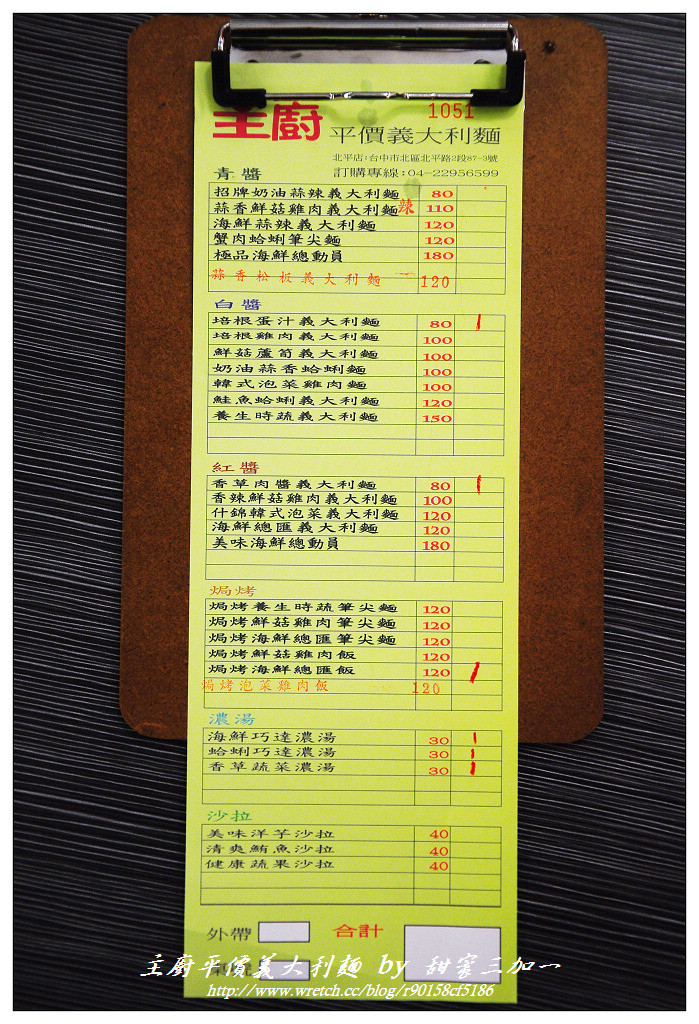 1051
主廚 平價義大利麵
北平店:台中市北區北平路2段87-3號
訂購專線:04-22956599
青醬
招牌奶油蒜辣義大利麵 80
蒜香鮮菇雞肉義大利麵辣 110
海鮮蒜辣義大利麵 120
蟹肉蛤蜊筆尖麵 120
極品海鮮總動員 180
蒜香松板義大利麵 120
白醬
培根蛋汁義大利麵 80
培根雞肉義大利麵 100
鮮菇蘆筍義大利麵 100
奶油蒜香蛤蜊麵 100
韓式泡菜雞肉麵 100
鮭魚蛤蜊義大利麵 120
養生時蔬義大利麵 150
紅醬
香草肉醬義大利麵 80
香辣鮮菇雞肉義大利麵 100
什錦韓式泡菜義大利麵 120
海鮮總匯義大利麵 120
美味海鮮總動員 180
焗烤
焗烤養生時蔬筆尖麵 120
焗烤鮮菇雞肉筆尖麵 120
焗烤海鮮總匯筆尖麵 120
焗烤鮮菇雞肉飯 120
焗烤海鮮總匯飯 120
焗烤泡菜雞肉飯 120
濃湯
海鮮巧達濃湯 30
蛤蜊巧達濃湯 30
香草蔬菜濃湯 30
沙拉
美味洋芋沙拉 40
清爽鮪魚沙拉 40
健康蔬果沙拉 40
外帶 合計
主廚平價義大利麵 by 甜蜜三加一
http://www.wretch.cc/blog/r90158cf5186